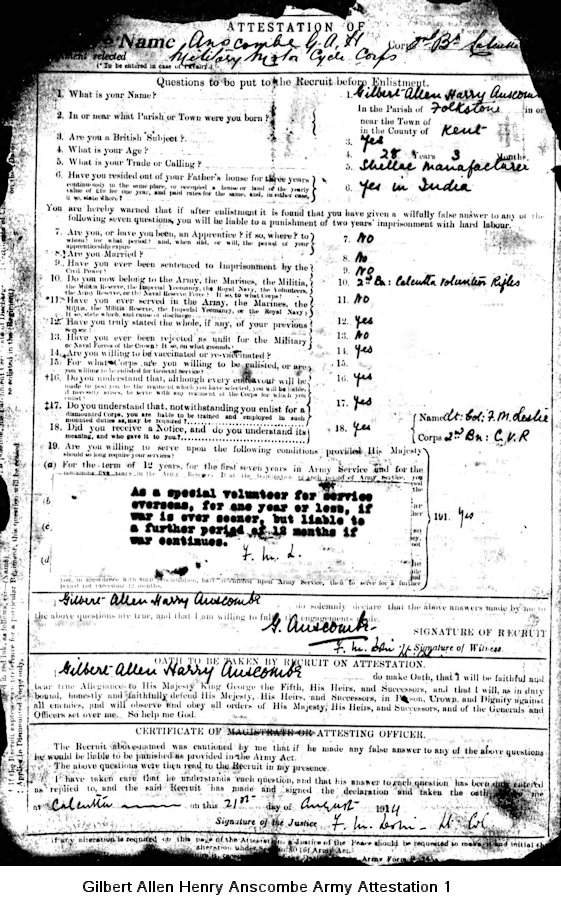 ATTESTATION OF
Name Anscombe G. A. H Corps 2nd Bn Calcutta
Military Motor Cycle Corps
(*To be entered in case of
Questions to be put to the Recruit before Enlistment.
1. What is your Name? 1. Gilbert Allen Harry Auscombe
2. In or near what Parish or Town were you born? 2. In the Parish of Folkstone in or
near the Town of
in the County of Kent
3. Are you a British Subject? 3. Yes
4. What is your Age? 4. 28 Years 3 Months
5. What is your Trade or Calling? 5. Shellac Manafacturer
6. Have you resided out of your Father's house for three years
continuously in the same place, or occupied a house or land of the yearly
value of £10 for one year, and paid rates for the same, and, in either case,
if so, state where? 6. Yes in India
You are hereby warned that if after enlistment it is found that you have given a wilfully false answer to any of the
following seven questions, you will be liable to a punishment of two years' imprisonment with hard labour.
7. Are you, or have you been, an Apprentice? if so, where? to
whom? for what period? and when did, or will, the period of your
apprenticeship expire 7. No
8. Are you Married? 8. No
9. Have you ever been sentenced to Imprisonment by the
Civil Power? 9. No
10. Do you now belong to the Army, the Marines, the Militia,
the Militia Reserve, the Imperial Yeomanry, the Royal Navy, the Volunteers,
the Army Reserve, or the Naval Reserve Force? If so, to what Corps? 10. 2nd Bn: Calcutta Volunteer Rifles
*11. Have you ever served in the Army, the Marines, the
Militia, the Militia Reserve, the Imperial Yeomanry, or the Royal Navy?
If so, state which, and cause of discharge 11. No
12. Have you truly stated the whole, if any, of your previous
Service? 12. Yes
13. Have you ever been rejected as unfit for the Military
or Naval Forces of the Crown? If so, on what grounds? 13. No
14. Are you willing to be vaccinated or re-vaccinated? 14. Yes
15. For what Corps are you willing to be enlisted, or are
you willing to be enlisted for General Service? 15.
†16. Do you understand that, although every endeavour will be
made to post you to the regiment which you have selected, you will be liable,
if necessity arises, to serve with any regiment of the Corps for which you
enlist? 16. Yes
‡17. Do you understand that, notwithstanding you enlist for a
dismounted Corps, you are liable to be trained and employed in such
mounted duties as may be required? 17. Yes
18. Did you receive a Notice, and do you understand its
meaning, and who gave it to you? 18. Yes Name Lt: Col: F. M. Leslie
Corps 2nd Bn: C. V. R
19. Are you willing to serve upon the following conditions provided His Majesty
should so long require your services?
(a) For the term of 12 years, for the first seven years in Army Service and for the
(b
(c
(d
191 Yes
As a special volunteer for service
overseas, for one year or less, if
war is over sooner, but liable to
a further period of 12 months if
war continues.
F. M. L.
Gilbert Allen Harry Auscombe do solemnly declare that the above answers made by me to
the above questions are true, and that I am willing to fulfil the engagements made.
G. Auscombe SIGNATURE OF RECRUIT
Signature of Witness.
OATH TO BE TAKEN BY RECRUIT ON ATTESTATION.
Gilbert Allen Harry Auscombe do make Oath, that I will be faithful and
bear true Allegiance to His Majesty King George the Fifth, His Heirs, and Successors, and that I will, as in duty
bound, honestly and faithfully defend His Majesty, His Heirs, and Successors, in Person, Crown, and Dignity against
all enemies, and will observe and obey all orders of His Majesty, His Heirs, and Successors, and of the Generals and
Officers set over me. So help me God.
CERTIFICATE OF MAGISTRATE OR ATTESTING OFFICER.
The Recruit abovenamed was cautioned by me that if he made any false answer to any of the above questions
he would be liable to be punished as provided in the Army Act.
The above questions were then read to the Recruit in my presence.
I have taken care that he understands each question, and that his answer to each question has been duly entered
as replied to, and the said Recruit has made and signed the declaration and taken the oath me
at Calcutta on this 21st day of August 1914
Signature of the Justice F. M. Leslie Lt Col
If any alteration is required on this page of the Attestation, a Justice of the Peace should be requested to make it and initial the
alteration under Army Act.
Army Form
Gilbert Allen Henry Anscombe Army Attestation 1